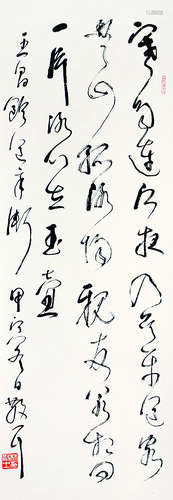 寒雨連江夜入吳平明送客
楚山孤洛陽親友如相問
一片冰心在玉壺
王昌齡送辛漸 冬日